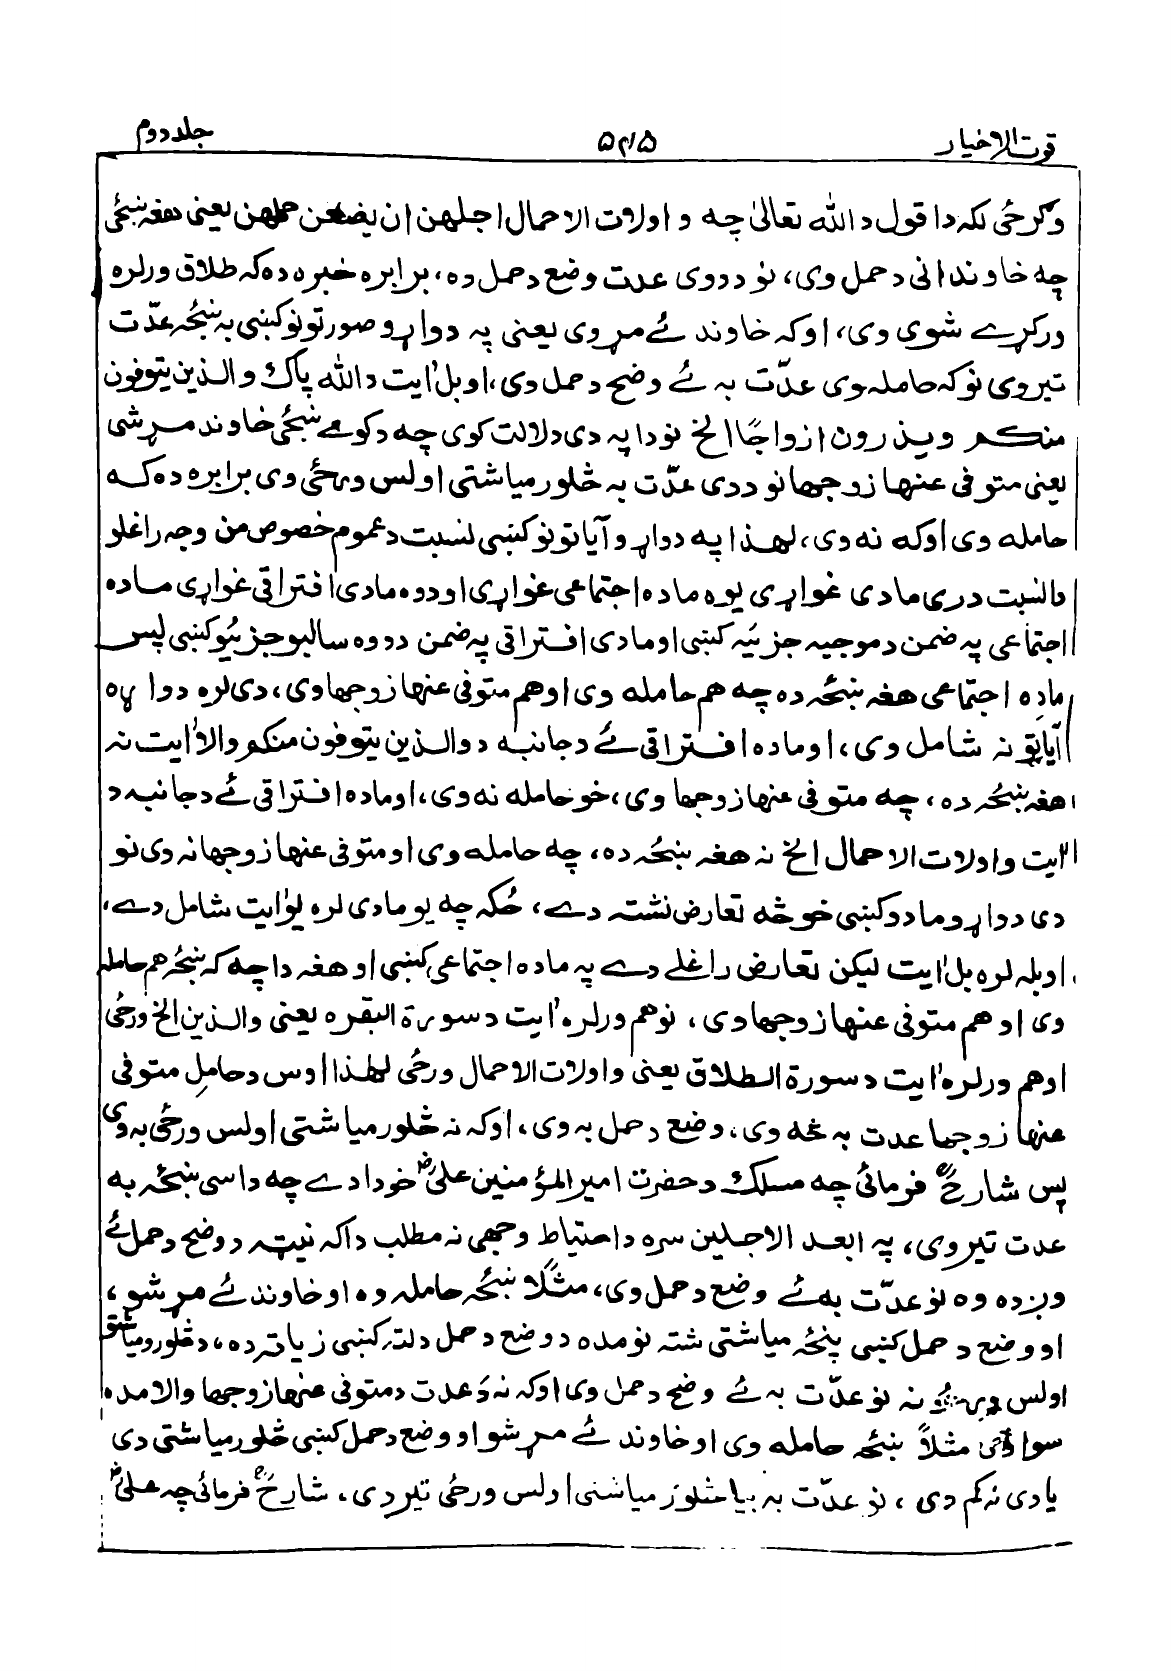 قوت الاخیار ۵۲۵ جلد دوم
وګرځی لکه دا قول د الله تعالیٰ چه و اولات الاحمال اجلهن ان یضعن حملهن یعنی هغه ښځی
چه خاوندانی د حمل وی، نو ددوی عدت وضع د حمل ده، برابره خبره ده که طلاق ورلره
ورکړے شوی وی، اوکه خاوند ئے مړ وی یعنی په دواړو صورتونو کښی به ښځه عدّت
تیروی نو که حامله وی عدّت به ئے وضح د حمل وی، او بل اٰیت د الله پاک والذین یتوفون
منکم ویذرون ازواجًا الخ نو دا په دی دلالت کوی چه د کومے ښځی خاوند مړ شی
یعنی متوفی عنها زوجها نو ددی عدّت به څلور میاشتی اولس ورځی وی برابره ده که
حامله وی اوکه نه وی، لهذا په دواړو آیاتونو کښی نسبت د عموم خصوص من وجه راغلو
دا نسبت دری مادی غواړی یوه ماده اجتماعی غواړی او دوه مادی افتراقی غواړی ماده
اجتماعی په ضمن د موجبه جزئیه کښی او مادی افتراقی په ضمن د دوه سالبو جزئیو کښی پس
ماده اجتماعی هغه ښځه ده چه هم حامله وی او هم متوفی عنها زوجها وی، دی لره دواړه
آیاتونه شامل وی، او ماده افتراقی ئے د جانبه د والذین یتوفون منکم والا اٰیت نه
هغه ښځه ده، چه متوفی عنها زوجها وی، خو حامله نه وی، او ماده افتراقی ئے د جانبه د
اٰیت واولات الاحمال الخ نه هغه ښځه ده، چه حامله وی او متوفی عنها زوجها نه وی نو
دی دواړو مادو کښی خو څه تعارض نشته دے، ځکه چه یو مادی لره یو اٰیت شامل دے،
او بله لره بل اٰیت لیکن تعارض راغلے دے په ماده اجتماعی کښی او هغه دا چه که ښځه هم حامله
وی او هم متوفی عنها زوجها وی، نو هم ورلره اٰیت د سورة البقره یعنی والذین الخ ورځی
او هم ورلره اٰیت د سورة الطلاق یعنی واولات الاحمال ورځی لهذا اوس د حاملِ متوفی
عنها زوجها عدت به څه وی، وضع د حمل به وی، اوکه نه څلور میاشتی اولس ورځی به وی
پس شارحؒ فرمائی چه مسلک د حضرت امیر المؤمنین علیؓ خو دا دے چه داسی ښځه به
عدت تیروی، په ابعد الاجلین سره د احتیاط وجهی نه مطلب دا که نیټه د وضح د حمل ئے
وږده وه نو عدّت به ئے وضع د حمل وی، مثلًا ښځه حامله وه او خاوند ئے مړ شو،
او وضع د حمل کښی پنځه میاشتی شته نو مده د وضع د حمل دلته کښی زیاته ده، د څلورو میاشتو
اولس ورځو نه نو عدّت به ئے وضح د حمل وی اوکه نه دَ عدت د متوفی عنها زوجها والا مده
سوا وی مثلاً ښځه حامله وی او خاوند ئے مړ شو او وضع د حمل کښی څلور میاشتی دی
یا دی نه کم دی، نو عدّت به بیا څلور میاشتی اولس ورځی تیر دی، شارحؒ فرمائی چه علیؓ